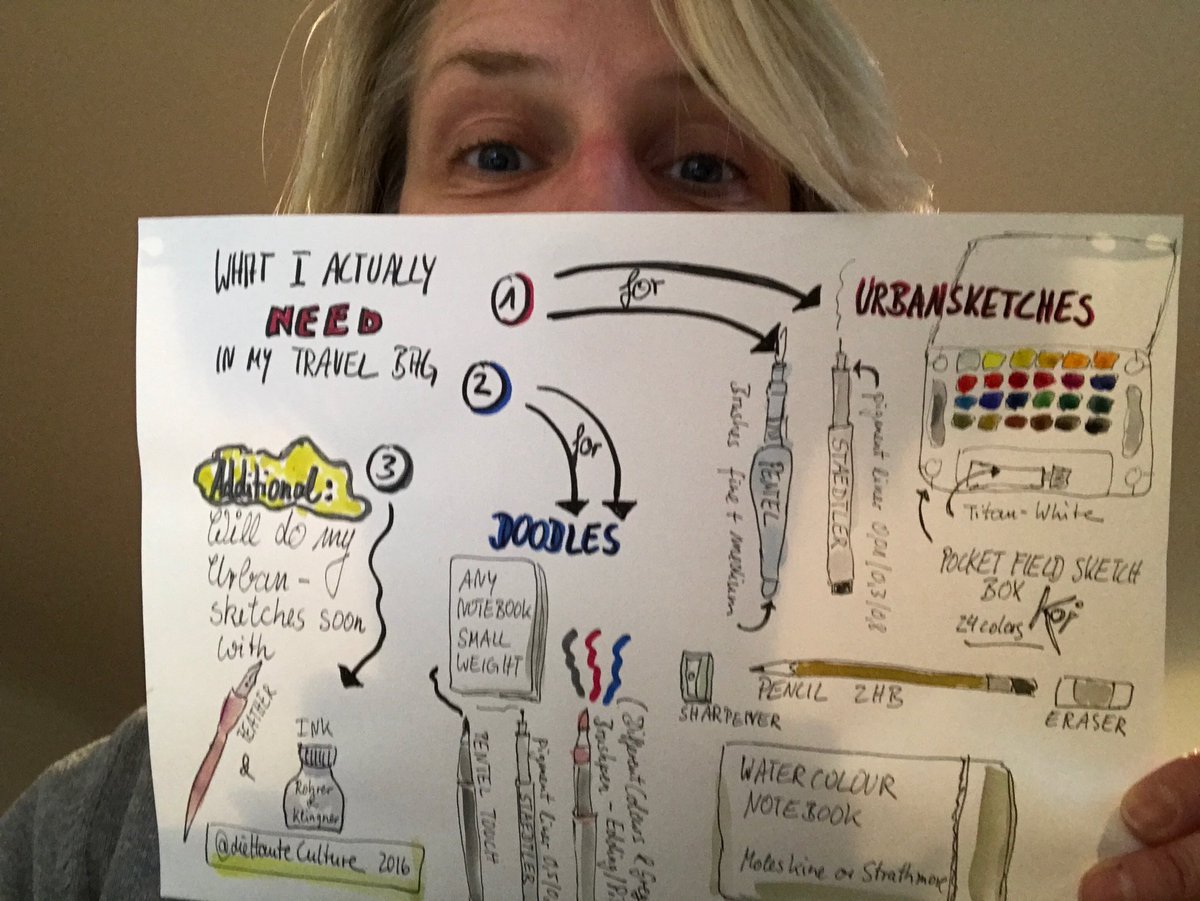 WHAT I ACTUALLY
NEED
IN MY TRAVEL BAG
1
for
URBANSKETCHES
Brushes fine + medium
PENTEL
STAEDTLER
pigment liner
Titan-White
POCKET FIELD SKETCH
BOX
24 colors
Koi
SHARPENER
PENCIL 2HB
ERASER
WATERCOLOUR
NOTEBOOK
Moleskine or Strathmore
2
for
DOODLES
ANY
NOTEBOOK
SMALL
WEIGHT
PENTEL TOUCH
pigment liner
STAEDTLER
Brushpen - Edding
(Different Colours &
3
Additional:
Will do my
Urban-
sketches soon
with
FEATHER
&
INK
Rohrer
&
Klingner
@dieHauteCulture 2016